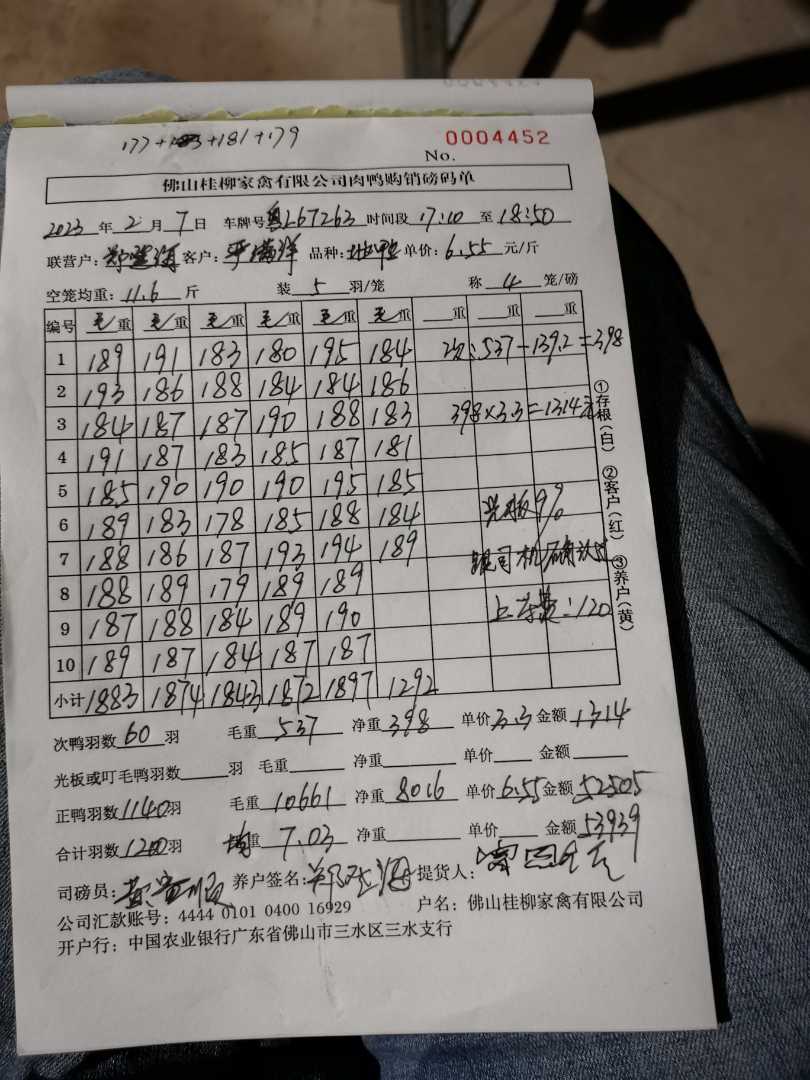 177+183+181+179
No. 0004452
佛山桂柳家禽有限公司肉鸭购销磅码单
2023 年 2 月 7 日 车牌号 粤L67263 时间段 17:10 至 18:50
联营户: 客户: 严满洋 品种: 单价: 6.55 元/斤
空笼均重: 11.6 斤 装 5 羽/笼 称 4 笼/磅
编号 毛重 毛重 毛重 毛重 毛重 毛重 重 重 重
1 189 191 183 180 195 184 次: 537-139.2=398
2 193 186 188 184 184 186
3 184 187 187 190 188 183 398×3.3=1314元
4 191 187 183 185 187 181
5 185 190 190 190 195 185
6 189 183 178 185 188 184 光板9%
7 188 186 187 193 194 189 跟司机
8 188 189 179 189 189
9 187 188 184 189 190 上车费:120
10 189 187 184 187 187
小计 1883 1874 1843 1872 1897 1292
次鸭羽数 60 羽 毛重 537 净重 398 单价 3.3 金额 1314
光板或叮毛鸭羽数 羽 毛重 净重 单价 金额
正鸭羽数 1140 羽 毛重 10661 净重 8016 单价 6.55 金额 52505
合计羽数 1200 羽 均重 7.03 净重 单价 金额 53939
司磅员: 养户签名: 提货人:
公司汇款账号: 4444 0101 0400 16929 户名: 佛山桂柳家禽有限公司
开户行: 中国农业银行广东省佛山市三水区三水支行
①存根(白) ②客户(红) ③养户(黄)